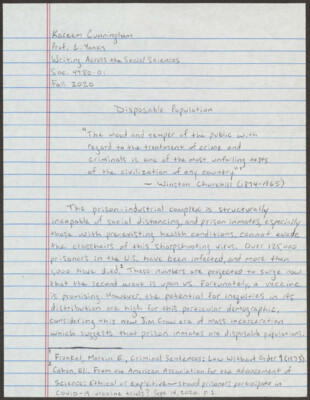 Kareem Cunningham
Prof. L. Yanks
Writing Across the Social Sciences
Soc. 4780-01
Fall 2020
Disposable Population
"The mood and temper of the public with
regard to the treatment of crime and
criminals is one of the most unfailing tests
of the civilization of any country."¹
~ Winston Churchill (1874-1965)
The prison-industrial complex is structurally
incapable of social distancing, and prison inmates, especially
those with pre-existing health conditions, cannot evade
the crosshairs of this sharpshooting virus. Over 125,000
prisoners in the U.S. have been infected, and more than
1,000 have died.² These numbers are projected to surge now
that the second wave is upon us. Fortunately, a vaccine
is promising. However, the potential for inequities in its
distribution are high for this particular demographic,
considering this new Jim Crow era of mass incarceration
which suggests that prison inmates are disposable populations.
1 Frankel, Marvin E., Criminal Sentences: Law Without Order 9 (1973).
2 Cahan, Eli. From the American Association for the Advancement of
Sciences: Ethical or exploitive—should prisoners participate in
COVID-19 vaccine trials? Sept. 14, 2020. P. 1